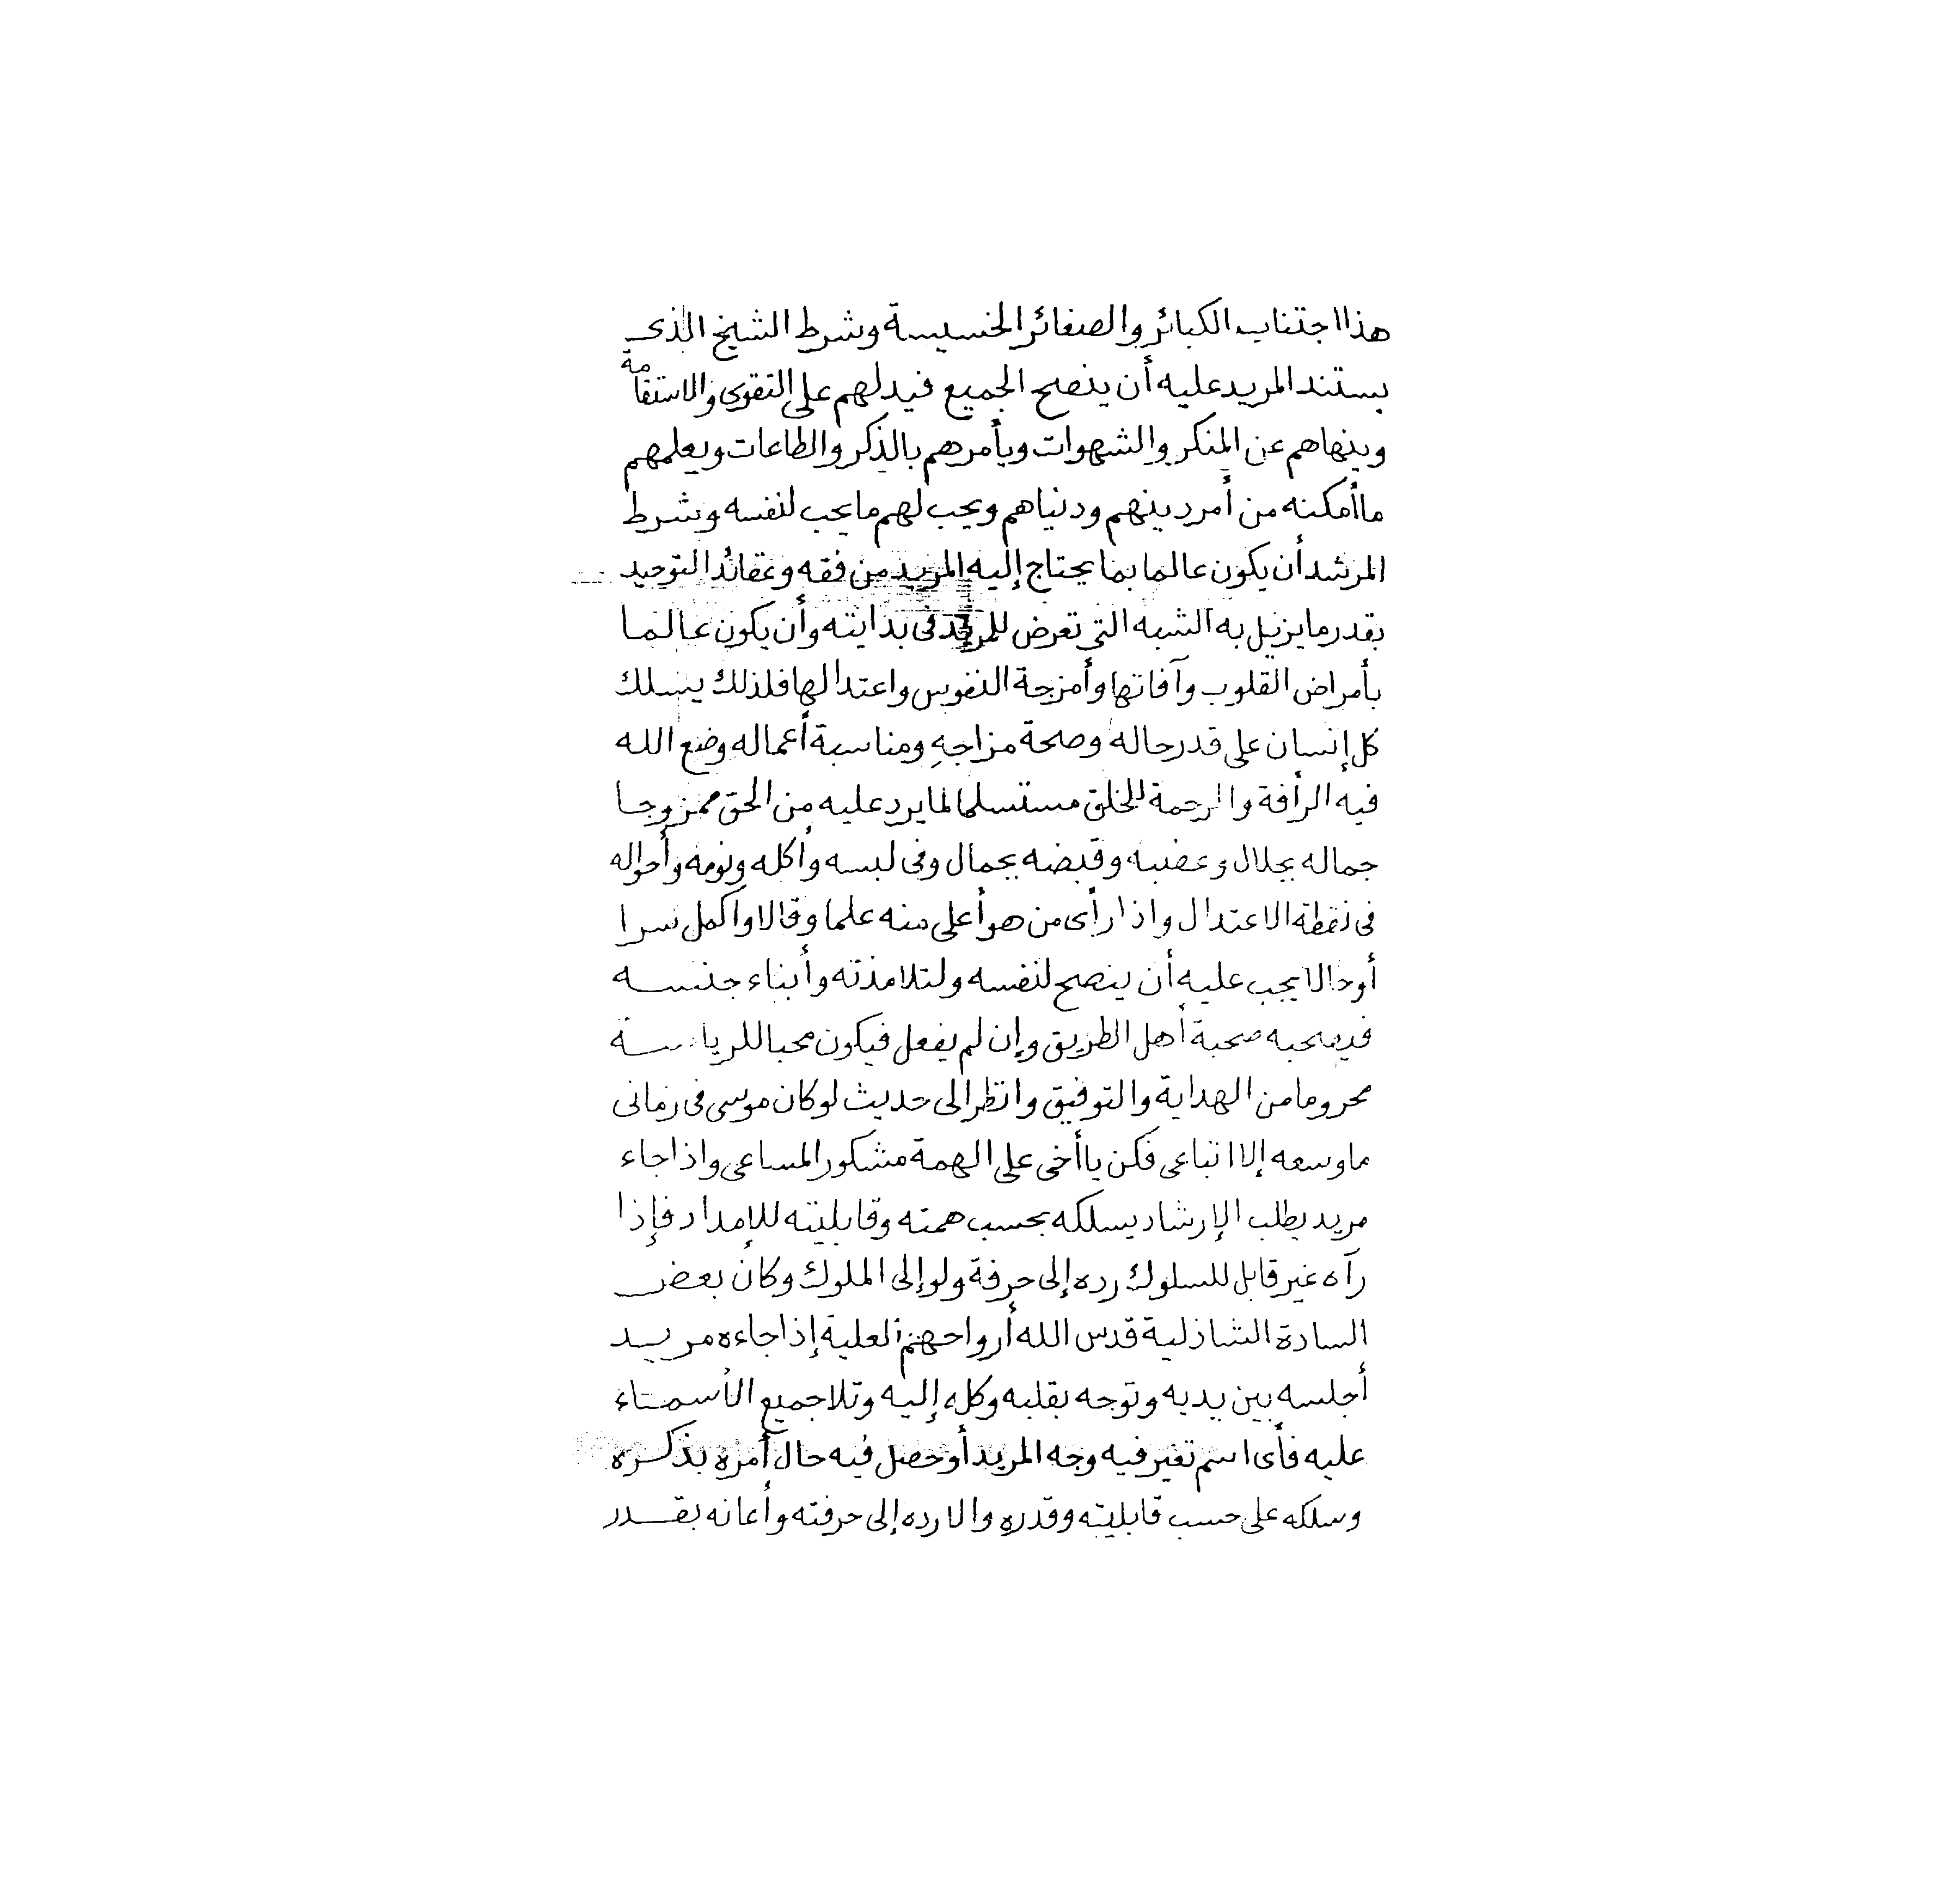 هذا اجتناب الكبائر والصغائر الخسيسة وشرط الشيخ الذى
يستند المريد عليه أن ينصح الجميع فيدلهم على التقوى والاستقامة
وينهاهم عن المنكر والشهوات ويأمرهم بالذكر والطاعات ويعلمهم
ما أمكنه من أمر دينهم ودنياهم ويحب لهم ما يحب لنفسه وشرط
المرشد أن يكون عالما بما يحتاج إليه المريد من فقه وعقائد التوحيد
بقدر ما يزيل به الشبه التى تعرض للمريد فى بدايته وأن يكون عالما
بأمراض القلوب وآفاتها وأمزجة النفوس واعتدالها فلذلك يسلك
كل إنسان على قدر حاله وصحة مزاجهِ ومناسبة أعماله وضع الله
فيه الرأفة والرحمة للخلق مستسلما لما يرد عليه من الحق ممزوجا
جماله بجلال وغضبه وقبضه بجمال وفى لبسه وأكله ونومه وأحواله
فى نقطة الاعتدال واذا رأى من هو أعلى منه علما وقالا واكمل سرا
أو حالا يجب عليه أن ينصح لنفسه ولتلامذته وأبناء جنسه
فيصحبه صحبة أهل الطريق وإن لم يفعل فيكون محبا للرياسة
محروما من الهداية والتوفيق وانظر الى حديث لو كان موسى فى زمانى
ما وسعه إلا اتباعى فكن يا أخى على الهمة مشكور المساعى واذا جاء
مريد يطلب الإرشاد يسلكه بحسب همته وقابليته للإمداد فإذا
رآه غير قابل للسلوك رده إلى حرفة ولو إلى الملوك وكان بعض
السادة الشاذلية قدس الله أرواحهم العلية إذا جاءه مريد
أجلسه بين يديه وتوجه بقلبه وكله إليه وتلا جميع الأسماء
عليه فأى اسم تغير فيه وجه المريد أو حصل فيه حال أمره بذكره
وسلكه على حسب قابليته وقدره والا رده إلى حرفته وأعانه بقدر